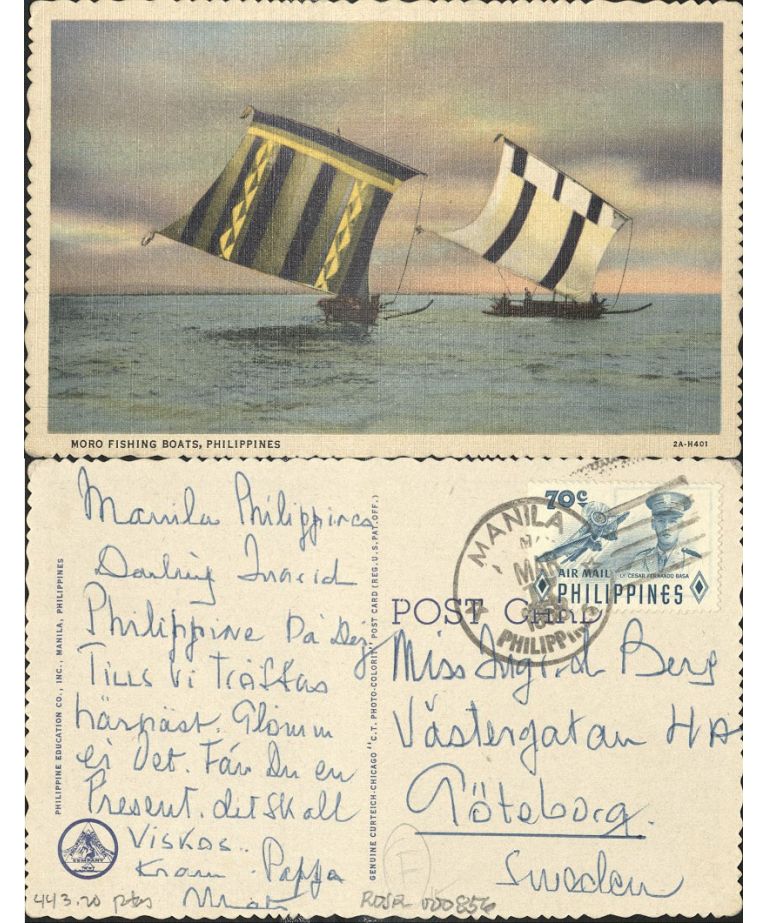 MORO FISHING BOATS, PHILIPPINES
2A-H401
Manila Philippines
Darling Ingrid
Philippine Då Dej
Tills Vi Träffas
härnäst. Glömm
ej Det. Får Du en
Present. det skall
Viskas..
Kram. Pappa
443.20 ptas
PHILIPPINE EDUCATION CO., INC., MANILA, PHILIPPINES
COMPANY
GENUINE CURTEICH-CHICAGO "C.T. PHOTO-COLORIT" POST CARD (REG. U.S. PAT. OFF.)
POST CARD
70c
AIR MAIL
LT. CESAR FERNANDO BASA
PHILIPPINES
MANILA
MAR
PHILIPPINES
Miss Ingrid Berg
Västergatan 4A
Göteborg.
Sweden
F